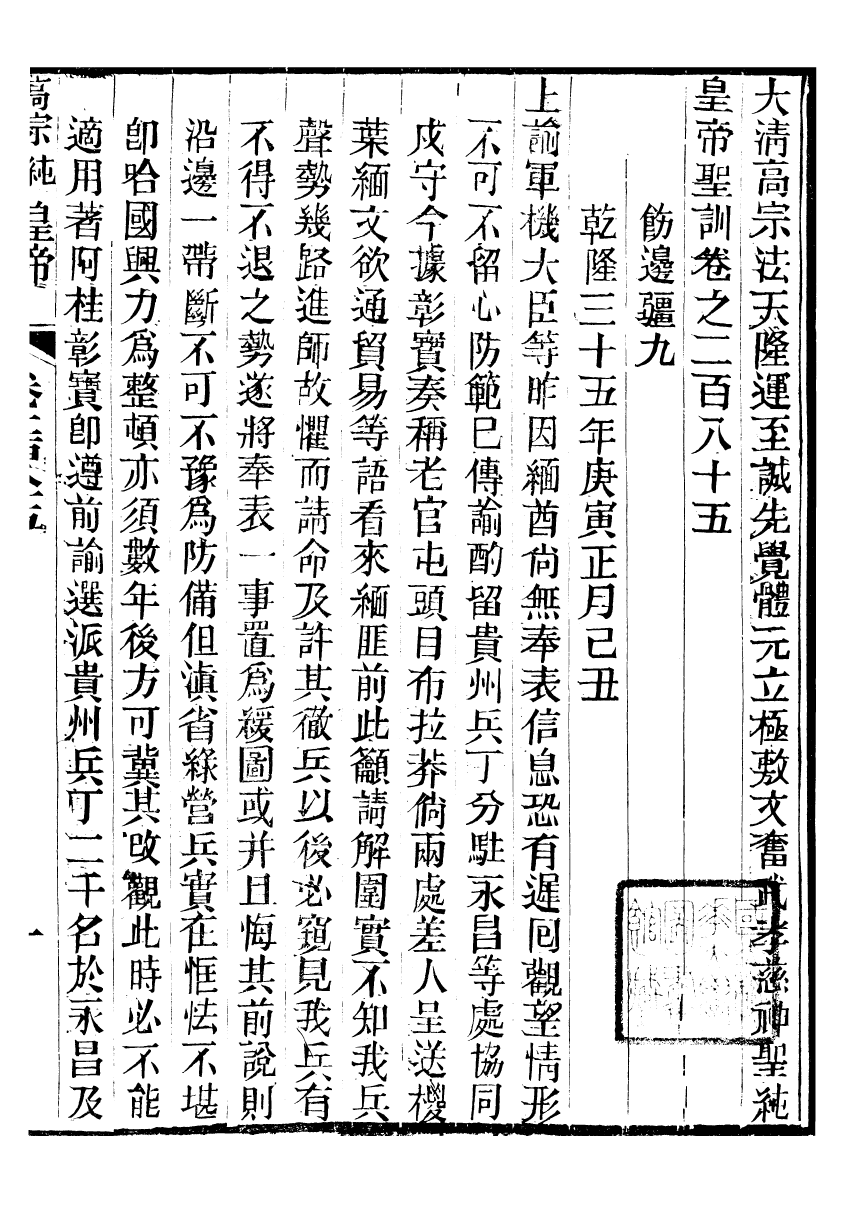 大淸高宗法天隆運至誠先覺體元立極敷文奮武孝慈神聖純
皇帝聖訓卷之二百八十五
飭邊疆九
乾隆三十五年庚寅正月己丑
上諭軍機大臣等昨因緬酋尙無奉表信息恐有遲囘觀望情形
不可不留心防範已傳諭酌留貴州兵丁分駐永昌等處協同
戍守今據彰寶奏稱老官屯頭目布拉莽倘兩處差人呈送櫻
葉緬文欲通貿易等語看來緬匪前此籲請解圍實不知我兵
聲勢幾路進師故懼而請命及許其徹兵以後必窺見我兵有
不得不退之勢遂將奉表一事置爲緩圖或并且悔其前說則
沿邊一帶斷不可不豫爲防備但滇省綠營兵實在恇怯不堪
卽哈國興力爲整頓亦須數年後方可冀其改觀此時必不能
適用著阿桂彰寶卽遵前諭選派貴州兵丁二千名於永昌及
高宗純皇帝
一